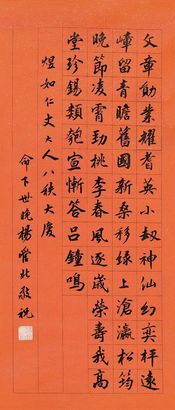 文章勛業耀耆英小劫神仙幻奕枰遠
嶂留青瞻舊國新桑移綠上滄瀛松筠
晚節凌霄勁桃李春風逐歲榮壽我高
堂珍錫類匏宣慚答呂鐘鳴
煜如仁丈大人八秩大慶
命下世晚楊管北敬祝